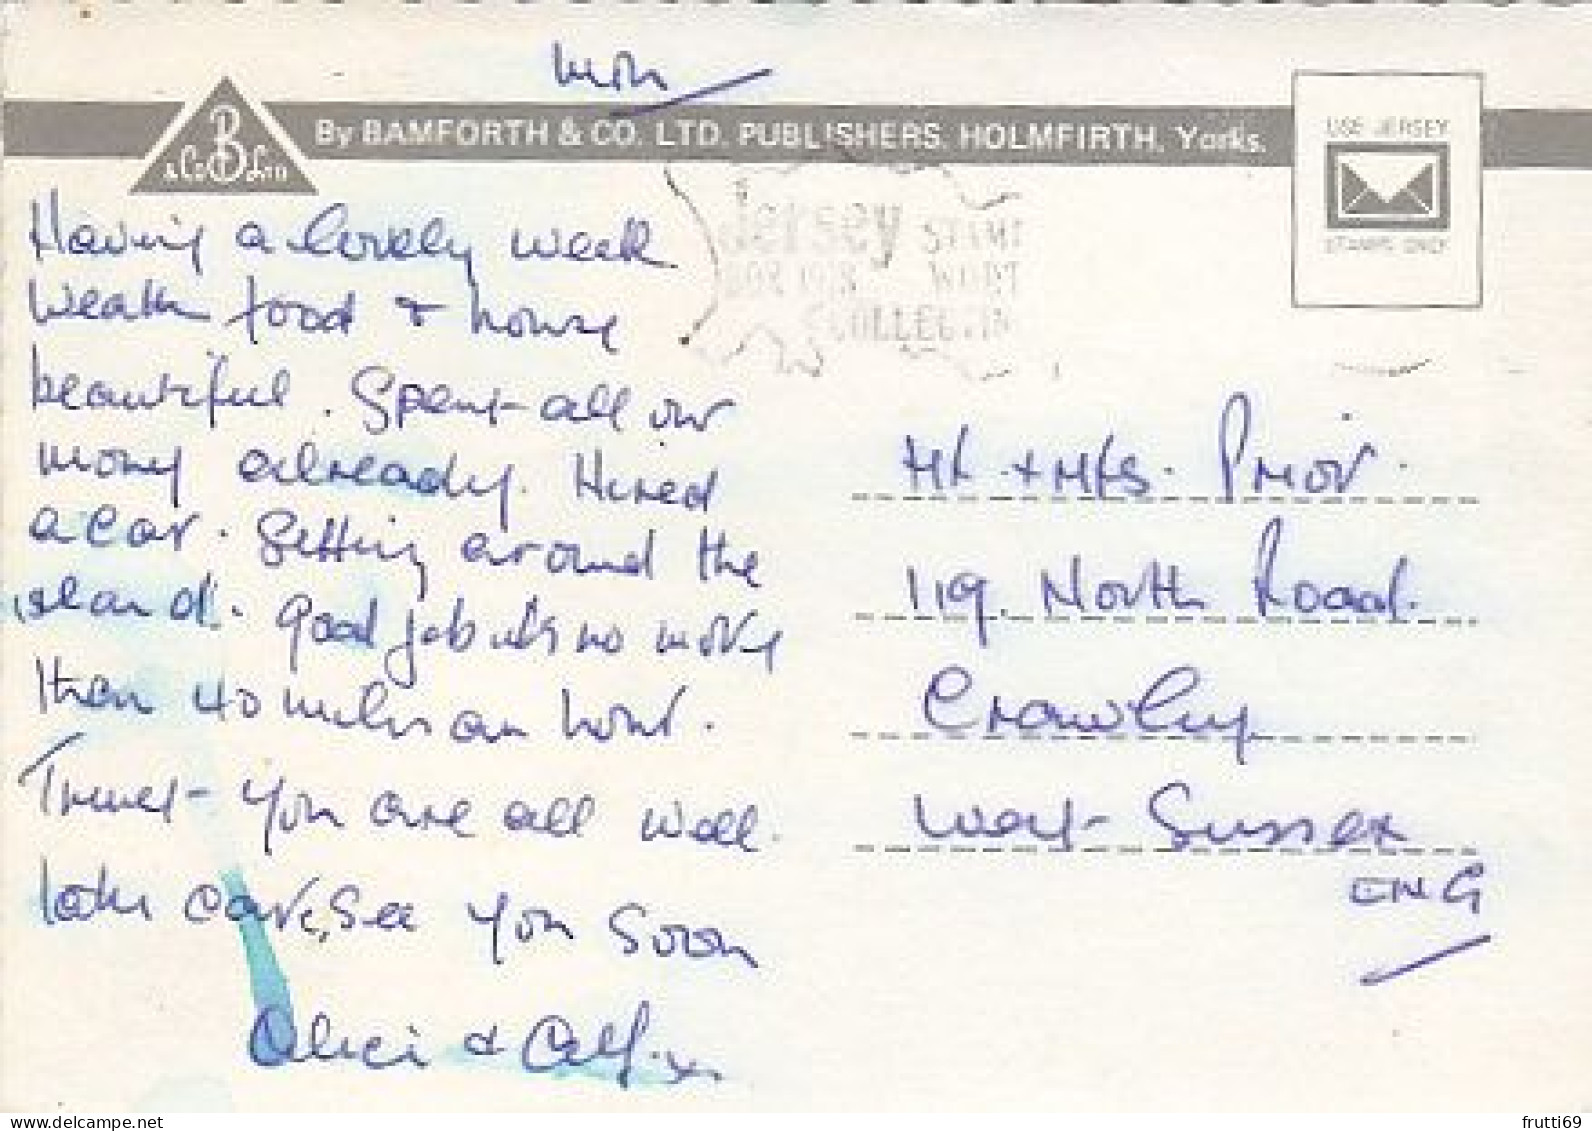 Mon
By BAMFORTH & CO. LTD. PUBLISHERS. HOLMFIRTH, Yorks.
B
& Co Ltd
USE JERSEY
STAMPS ONLY
Jersey STAMPS
BOX WORTH
COLLECTING
Having a lovely week
Weath food & house
beautiful. Spent all our
money already. Hired
a car. Getting around the
island. Good job its no more
than 40 miles an hour.
Trust you are all well.
take care, see you soon
Alice & Alf. x.
Mr. & Mrs. Prior.
119. North Road.
Crawley
West Sussex
ENG
frutti69
www.delcampe.net